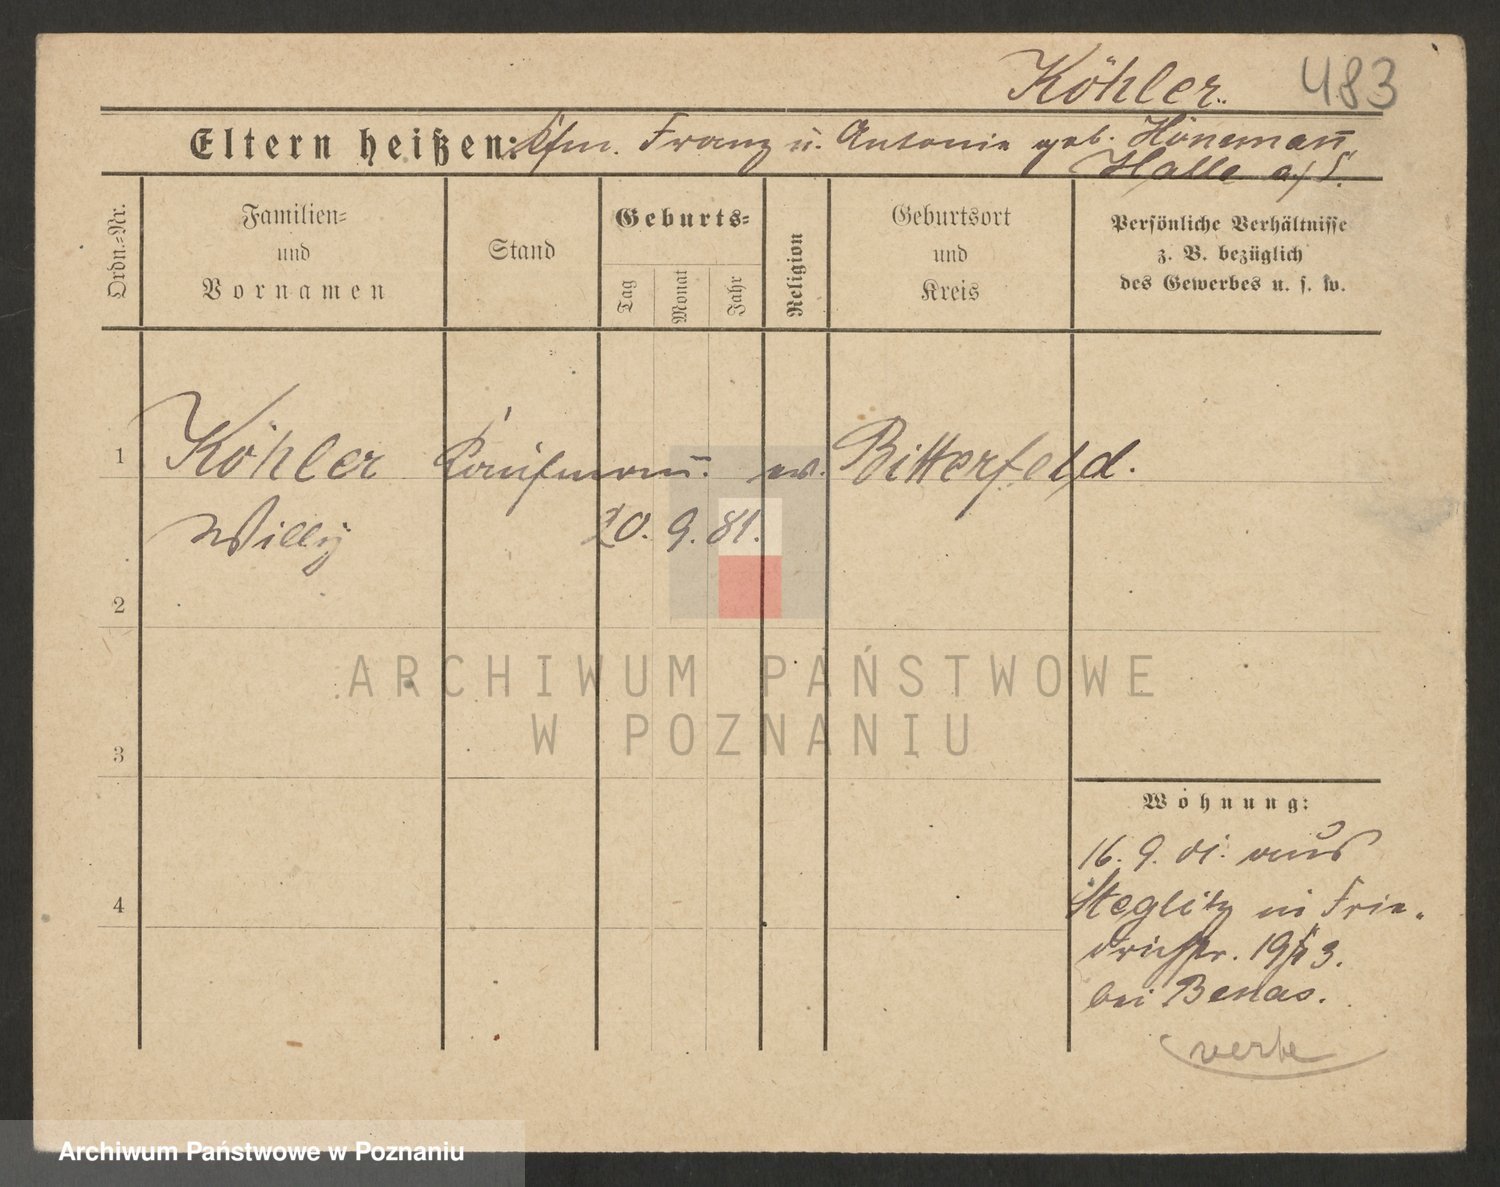 Köhler. 483
Eltern heißen: Kfm. Franz u. Antonie geb. Hönemañ,
Halle a/S.
Ordn.=Nr.
Familien=
und
Vornamen
Stand
Geburts=
Tag
Monat
Jahr
Religion
Geburtsort
und
Kreis
Persönliche Verhältnisse
z. B. bezüglich
des Gewerbes u. s. w.
1 Köhler Kaufmañ. ev. Bitterfeld.
Willy 20. 9. 81.
2
ARCHIWUM PAŃSTWOWE
W POZNANIU
3
Wohnung:
16. 9. 01. aus
4
Steglitz in Frie-
drichstr. 19/3.
bei Benas.
Archiwum Państwowe w Poznaniu